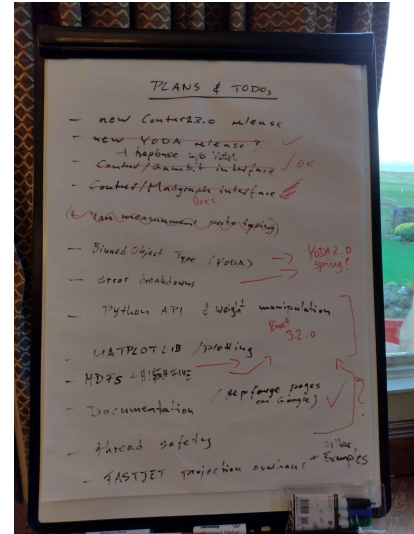 PLANS & TODOs
- new Contur 2.2.0 release
- new YODA release?
- Contur/Gambit interface OK
- Contur/Madgraph interface
Docs.
measurement prototyping
- Binned Object Type (YODA) → YODA 2.0
- error breakdowns spring!
- Python API & weight manipulation
3.2.0
- MATPLOTLIB / plotting
- HDF5
- Documentation (Hepforge pages
on Google)
- thread safety
- FASTJET projection overhaul + Examples